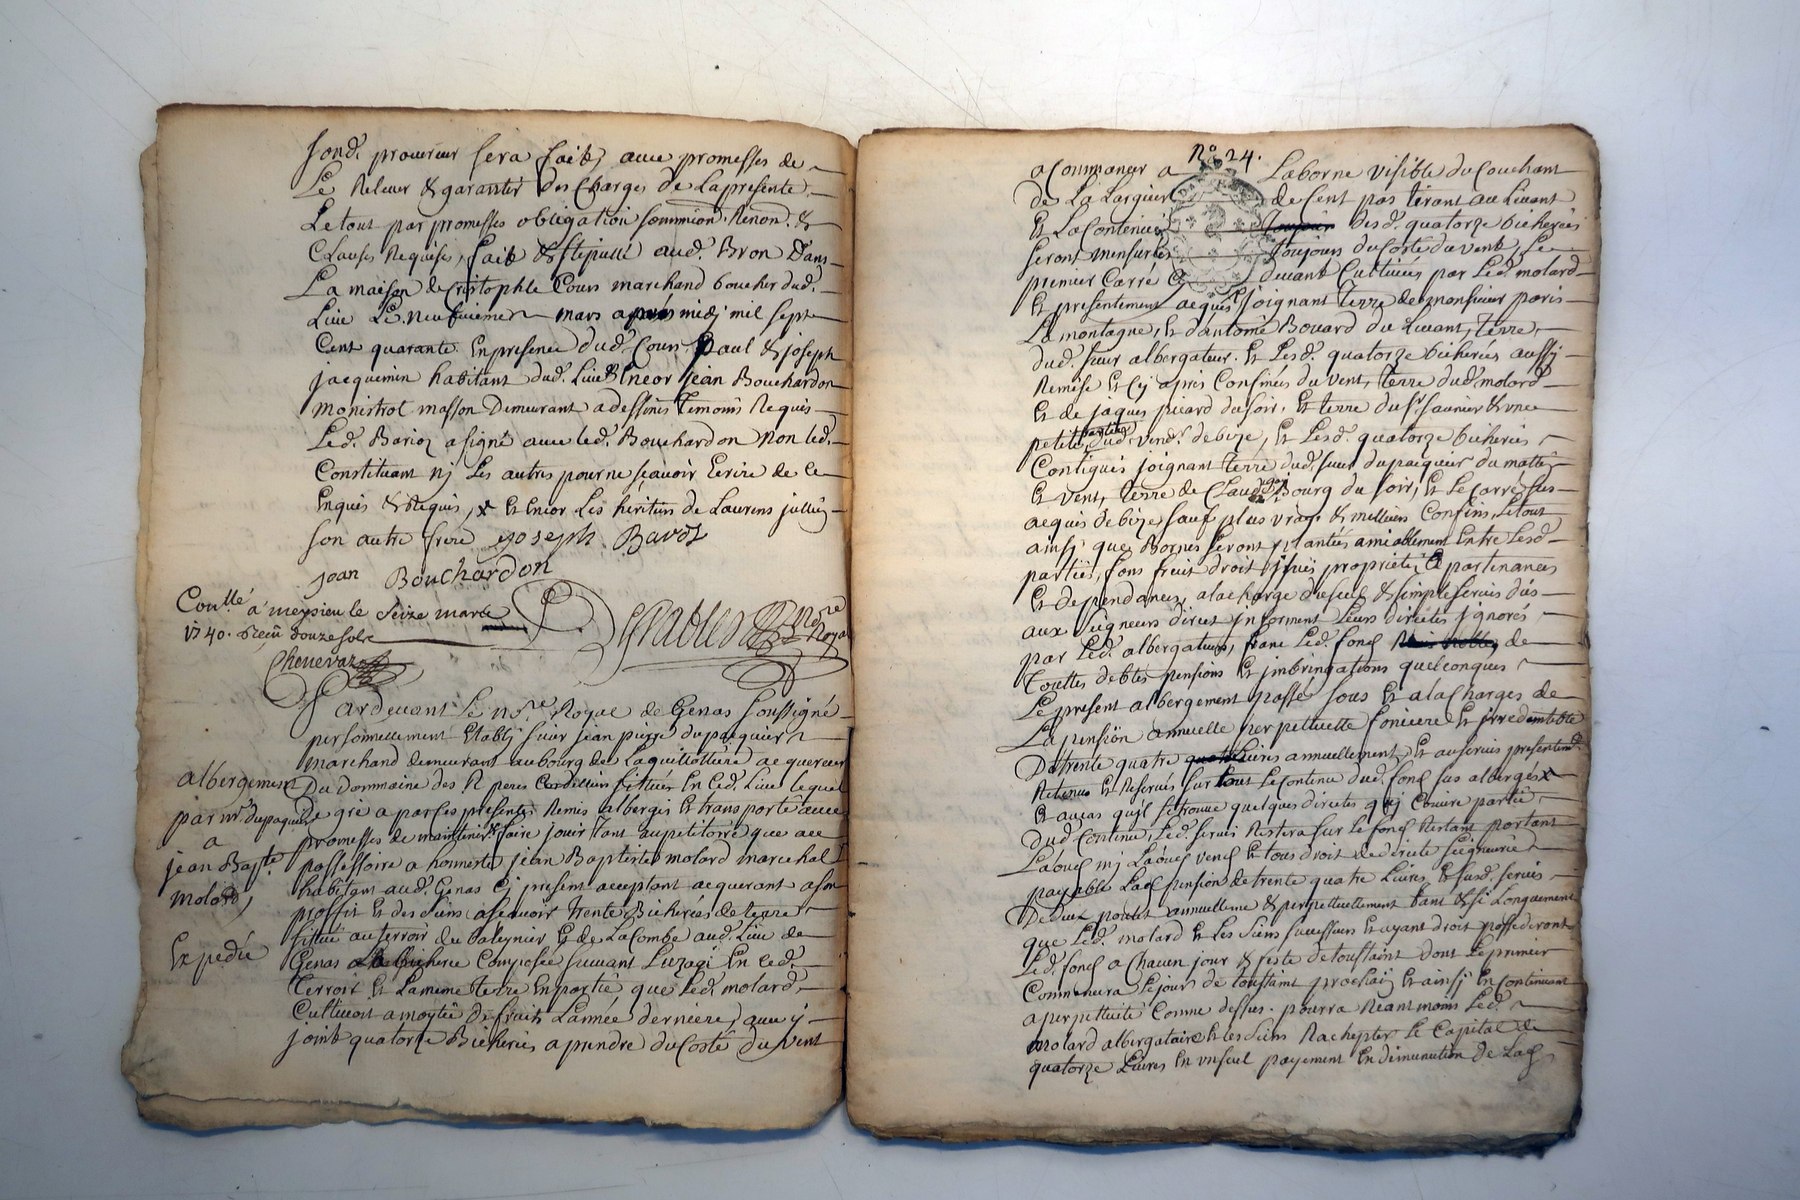 fond. procureur sera fait, avec promesses de
Le Relever & garantir des Charges de La presente
Le tout par promesses obligation soummion. Renon. &
Clauses Requise, fait & stipullé aud. Bron Dans
La maison de Cristophle Cours marchand boucher dud.
Lieu Le neufvieme mars apres midj mil sept
Cent quarante En presence dud. Cours Paul & joseph
jacquemin habitant dud. Lieu & Encor jean Bouchardon
monistrol masson Demeurant a dessines Temoins Requis
Led. Barioz a signé avec led. Bouchardon Non led.
Constituant nj Les autres pour ne scavoir Ecrire de ce
Enquis & Requis, x Et Encor Les héritiers de Laurens jullij
son autre frere joseph Barioz
jean Bouchardon
Con.llé a meysieu le Seize mars
1740. Reçu douze sols
Chenevaz
Nore Royal
Pardevant Le no.re Royal de Genas soussigné
personnellement Establj sieur jean pierre dupacquier
marchand demeurant au bourg de La quillottiere acquereur
albergement Du dommaine des R peres Cordelliers sittués En Ced. Lieu lequel
par mr. dupaquier De gré a par ses presentes Remis albergé et transporté avec
a promesses de maintenir & faire jouir Tant au petitoire que au
jean Bapte. possessoire a honneste jean Baptiste molard marechal
molard, habitant aud. Genas Cj present acceptant acquerant a son
proffit Et des siens ascavoir Trente Bicherées de terre
sittué au terroir du Paleynier Et de La Combe aud. Lieu de
Expedié Genas La bicherée Composée suivant L'uzage En Ced.
Terroir Et La meme terre En partie que Led. molard
Cultivoit a moytié de fruits L'année derniere, avec y
joint quatorze Bicherées a prendre du Costé du vent
No. 24.
a Commancer a La borne visible du Couchant
de La Largueur de Cent pas tirant au Levant
Et La Contenue desd. quatorze bicherées
seront mensurées Toujours du Costé du vent, Le
premier Carré Cj devant Cultivées par Led. molard
Et presentement acquis joignant Terre de monsieur paris
La montagne, Et d'antoine Bouard du Levant, Terre
dud. sieur albergateur. Et Lesd. quatorze bicherées aussy
Remise Et Cj apres Confinées du vent, Terre dud. molard
Et de jaques picard du soir, Et terre du sr. saunier & une
petite partie dud. vend.r de bize, Et Lesd. quatorze bicherées
Contigues joignant Terre dud. sieur dupacquier du mattin
Et vent, Terre de Claude Bourg du soir, Et Le Carré sus
acquis de bize sauf plus vrays & meilleurs Confins, Le tout
ainsj que Bornes seront plantées amiablement Entre Lesd.
parties, fons fruit droit jssues proprieté appartenances
Et dependances, a la charge du seul & simple servis dus
aux seigneurs direct jnforment Leurs directes jgnorés
par Led. albergateur, franc Led. fond de
Touttes debtes pensions Et jmbringations quelconques
Le present albergement passé sous Et a la Charges de
La pension annuelle perpettuelle fonciere Et jrredimtible
De trente quatre Livres annuellement, Et au servis presentemt.
Retenus Et Reservés sur tout Le Contenu dud. fond sus albergés
Et au cas qu'il se trouve quelques directes qui Couvre partie
Dud. Contenu, Led. servis Restera sur Le fond Restant portant
Laouds mj Laouds vends Et tous droit de directe seigneurie
payable Lad. pension de trente quatre Livres & susd. servis
De deux poulet annuelleme & perpettuellement tant & si Longuement
que Led. molard Et Les siens successeurs Et ayant droit possederont
Led. fond a Chacun jour & feste de toussaint dont Le premier
Commencera Le jour de toussaint prochain Et ainsj En Continuant
a perpettuité Comme dessus. pourra Neantmoins Led.
molard albergataire & les siens Rachepter Le Capital de
quatorze Livres En un seul payement En diminution de Lad.